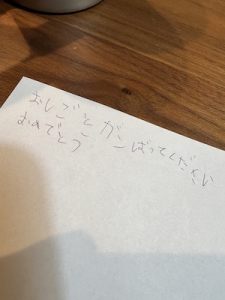 おしごとがんばってください
おめでとう